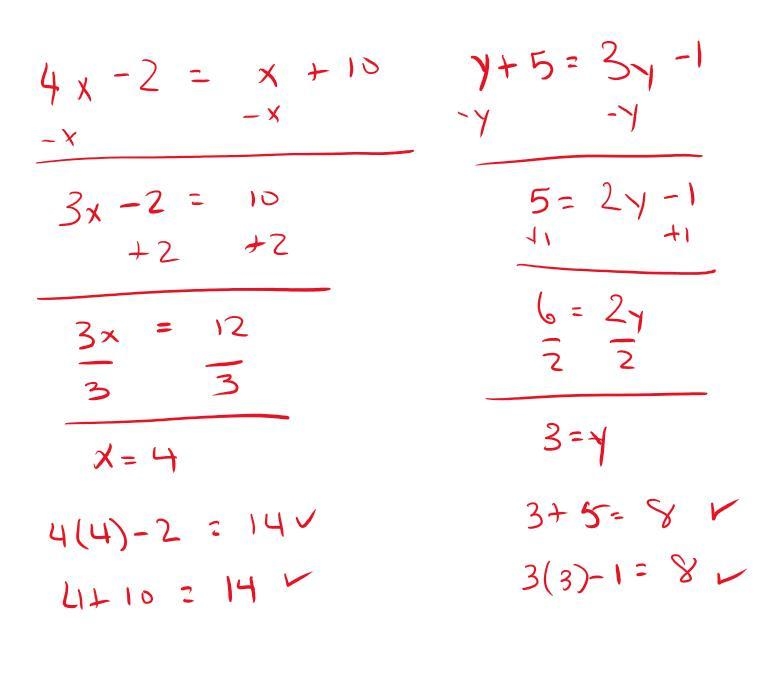 4x -2 = x + 10
-x -x
3x -2 = 10
+2 +2
3x = 12
3 3
x = 4
4(4)-2 = 14 ✓
4+ 10 = 14 ✓
y+5 = 3y -1
-y -y
5 = 2y -1
+1 +1
6 = 2y
2 2
3 = y
3+ 5 = 8 ✓
3(3)-1 = 8 ✓